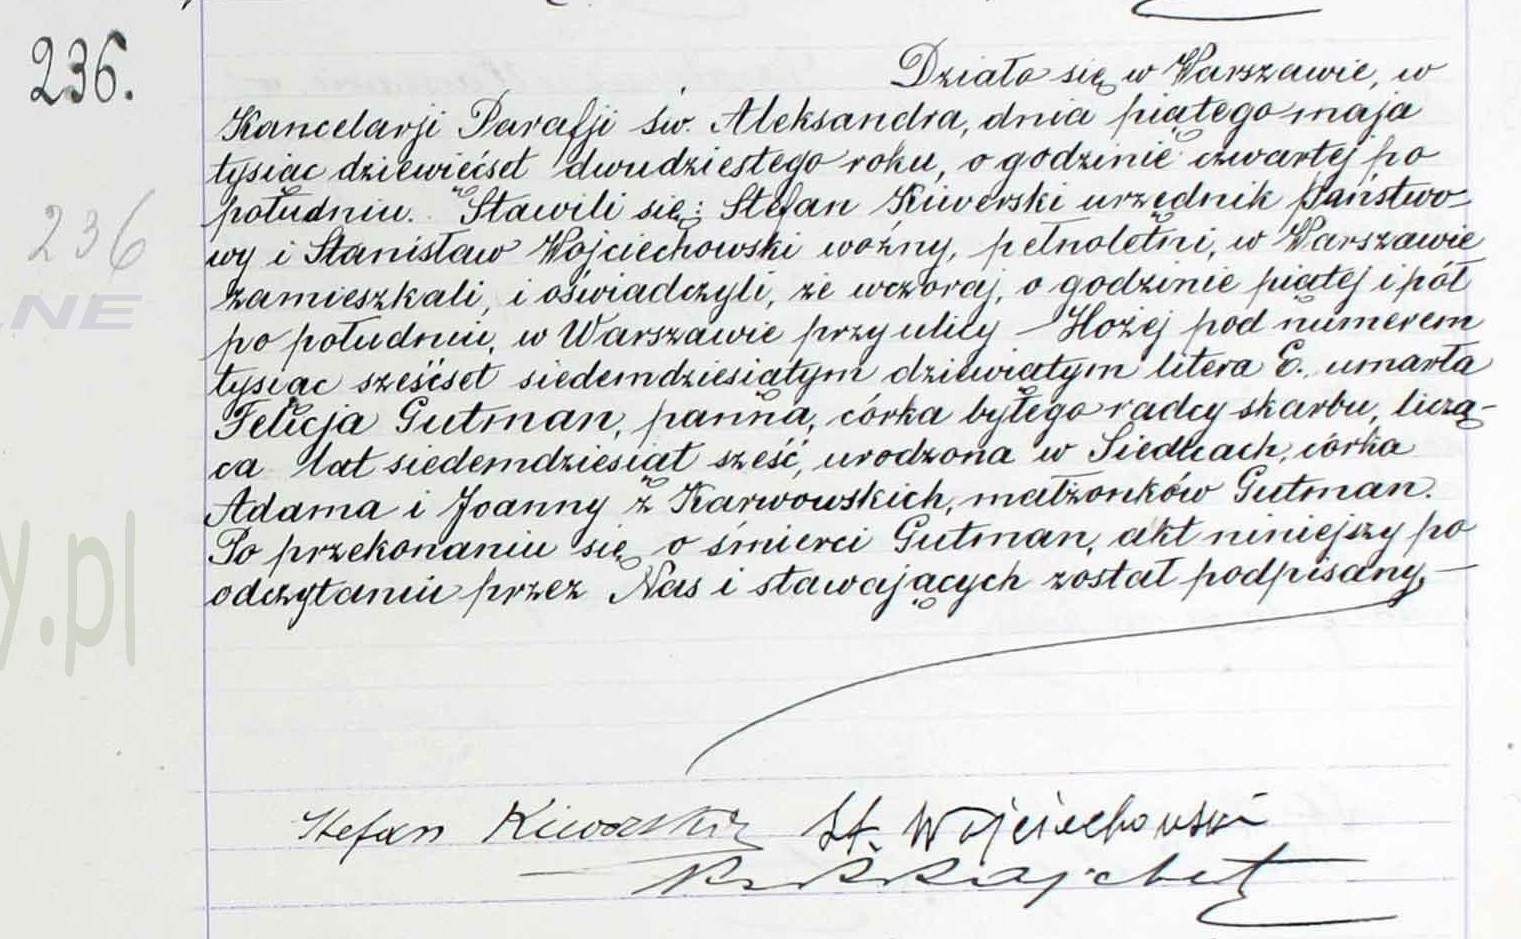 236.
Działo się w Warszawie, w
Kancelarji Parafji św. Aleksandra, dnia piątego maja
tysiąc dziewięćset dwudziestego roku, o godzinie czwartej po
południu. Stawili się: Stefan Kiwerski urzędnik Państwo-
wy i Stanisław Wojciechowski woźny, pełnoletni, w Warszawie
236
zamieszkali, i oświadczyli, że wczoraj, o godzinie piątej i pół
NE
po południu, w Warszawie przy ulicy Hożej pod numerem
tysiąc sześćset siedemdziesiątym dziewiątym litera E. umarła
Felicja Gutman, panna, córka byłego radcy skarbu, liczą-
ca lat siedemdziesiąt sześć, urodzona w Siedlcach, córka
Adama i Joanny z Karwowskich, małżonków Gutman.
Po przekonaniu się o śmierci Gutman, akt niniejszy po
odczytaniu przez Nas i stawających został podpisany,—
y.pl
Stefan Kiwerski St. Wojciechowski